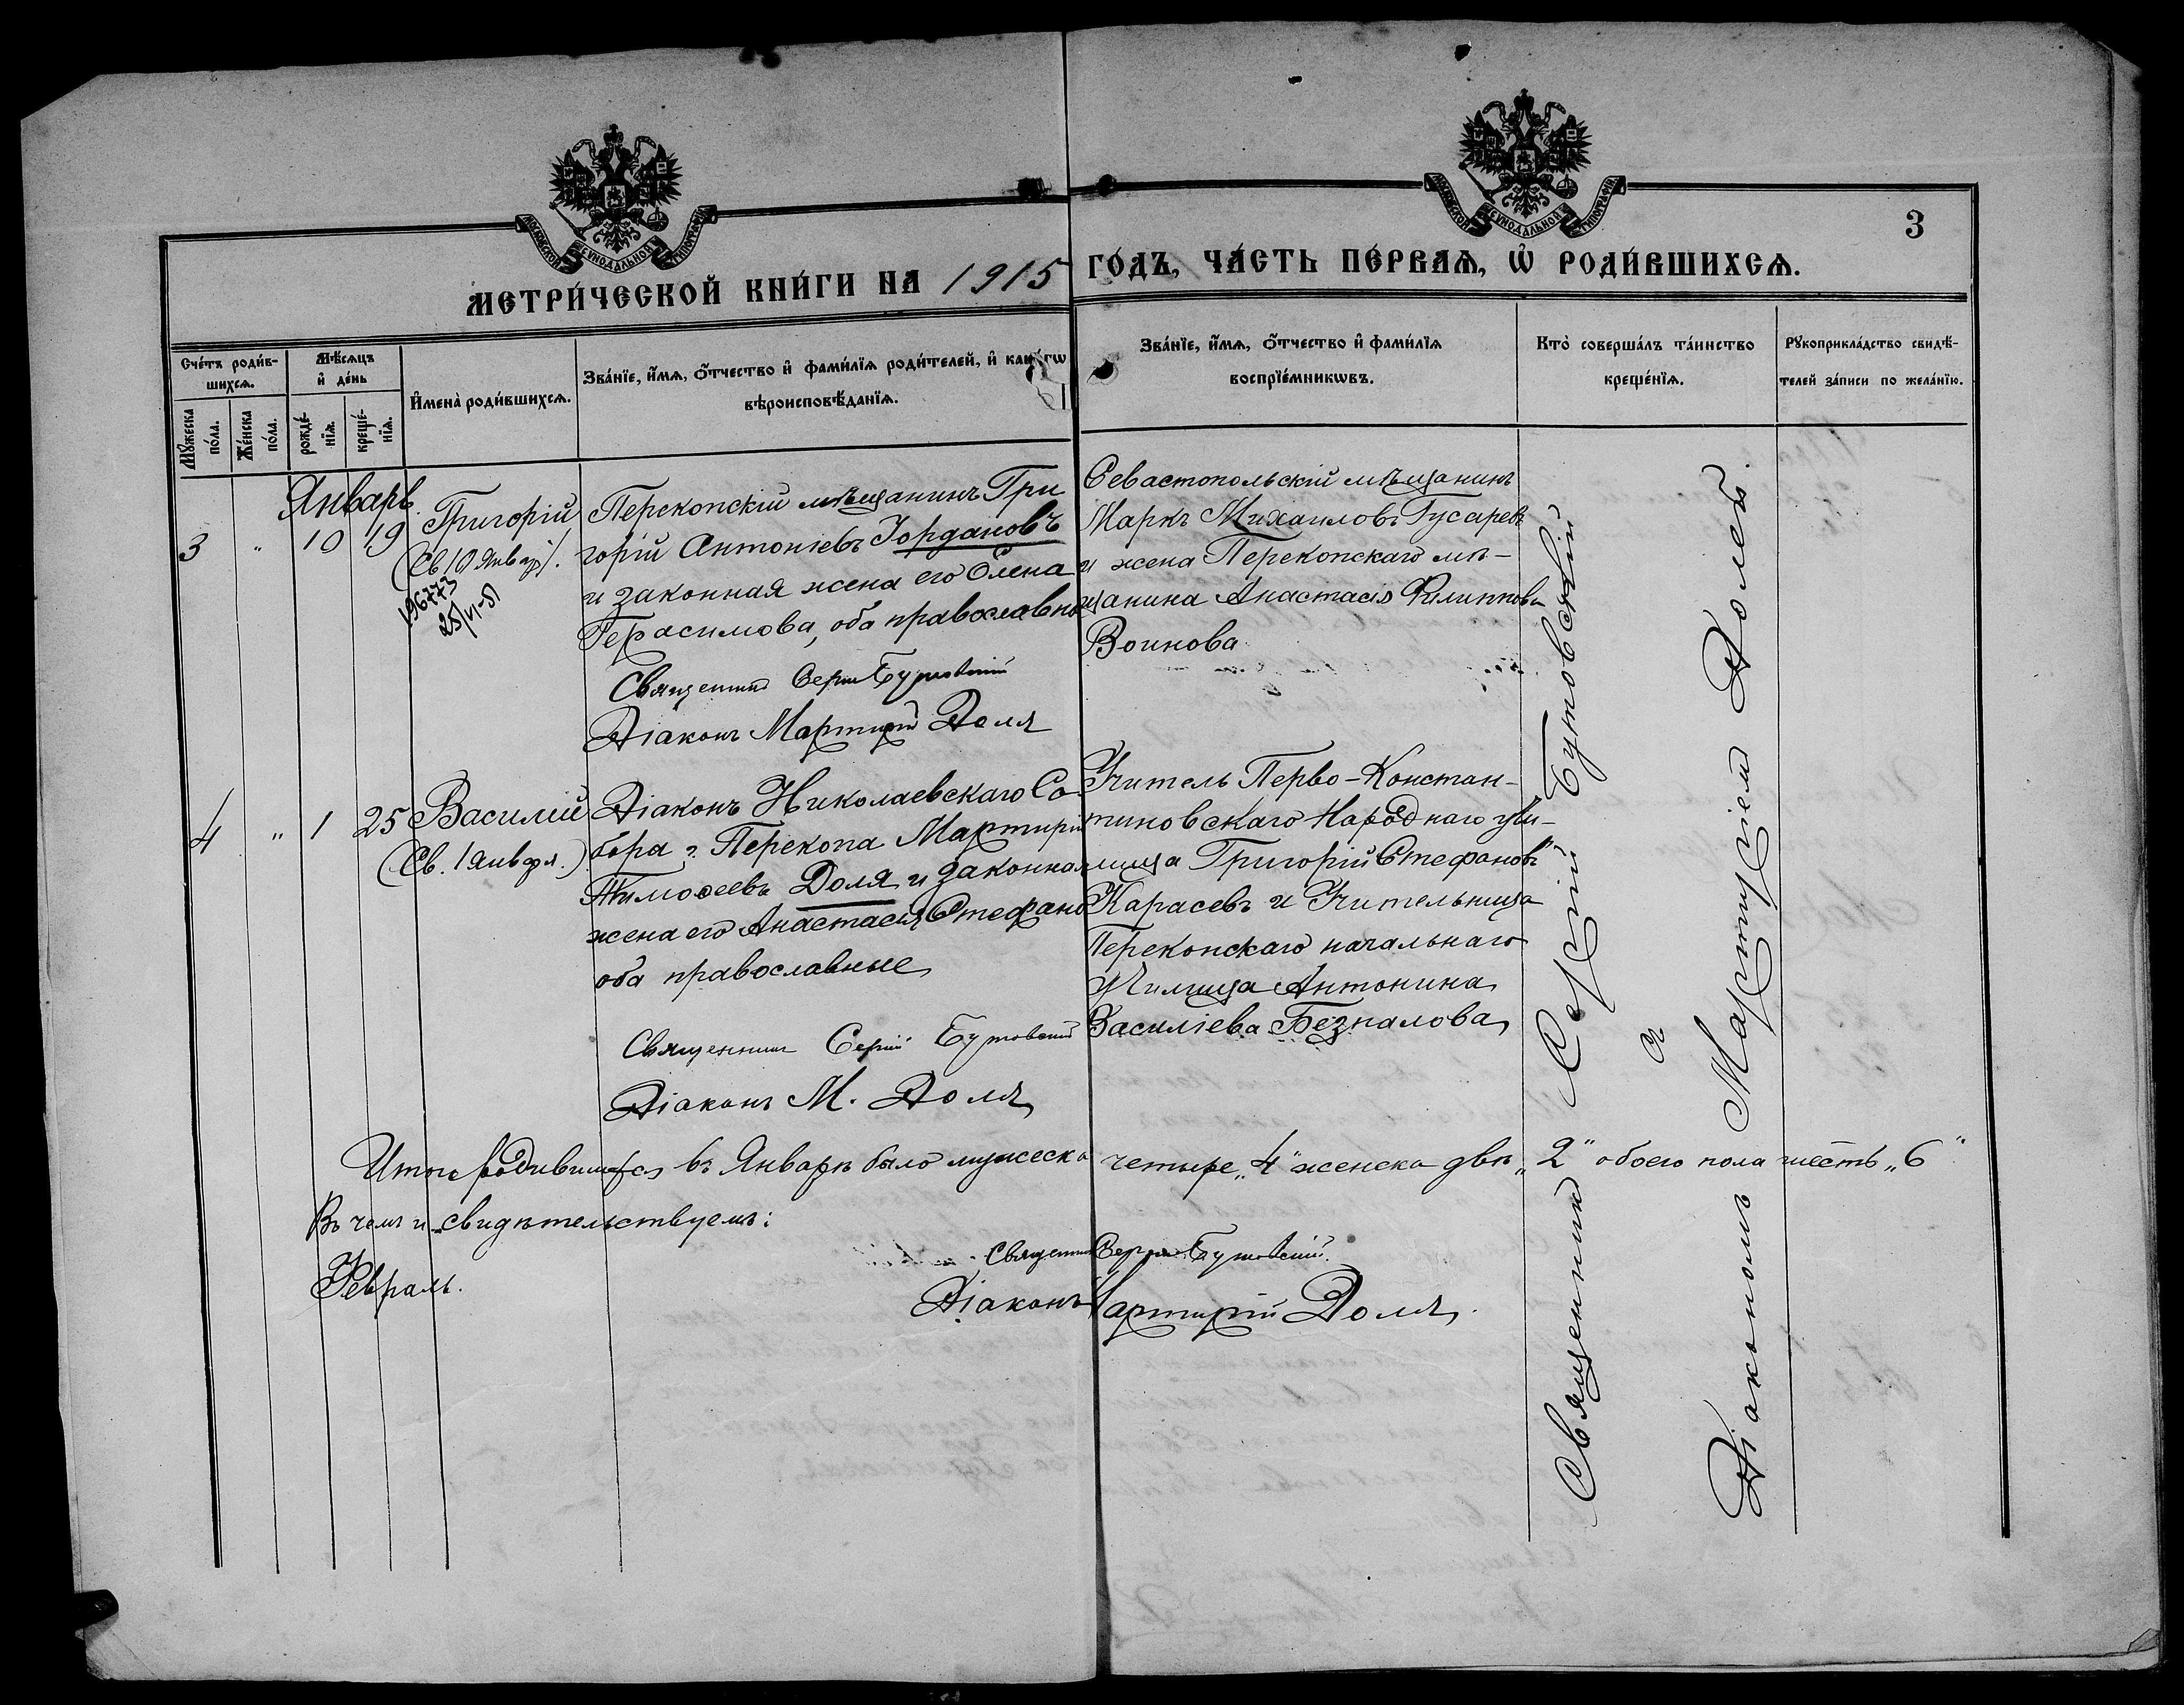 МОСКОВСКОЙ СѴНОДАЛЬНОЙ ТИПОГРАФІИ
МОСКОВСКОЙ СѴНОДАЛЬНОЙ ТИПОГРАФІИ
3
МЕТРИ́ЧЕСКОЙ КНИ́ГИ НА 1915 ГО́ДЪ, ЧА́СТЬ ПЕ́РВАѦ, Ѡ҆ РОДИ́ВШИХСѦ.
Сче́тъ роди́в-
шихсѧ.
Мꙋ́жеска по́ла.
Же́нска по́ла.
Мѣ́сѧцъ
и҆ де́нь
рожде́-
нїѧ.
креще́-
нїѧ.
И҆мена̀ роди́вшихсѧ.
Зва́нїе, и҆́мѧ, ѻ҆́тчество и҆ фами́лїѧ роди́телей, и҆ какѡ́гѡ
вѣроисповѣ́данїѧ.
Зва́нїе, и҆́мѧ, ѻ҆́тчество и҆ фами́лїѧ
воспрїе́мникѡвъ.
Кто̀ соверша́лъ та́инство
креще́нїѧ.
Рꙋкоприкла́дство свидѣ́-
телей за́писи по жела́нїю.
Январь
3 " 10 19 Григорій
(Св 10 Январ).
196773
25/VI-51
Перекопскій мѣщанинъ Гри
горій Антоніевъ Іордановъ
и законная жена его Елена
Герасимова, оба православно
Священник Сергій Бутовский
Діаконъ Мартирій Доля
Севастопольскій мѣщанинъ
Маркъ Михаиловъ Гусаревъ
и жена Перекопскаго мѣ-
щанина Анастасія Филиппова
Воинова
4 " 1 25 Василій
(Св. 1 Января.)
Діаконъ Николаевскаго Со
бора г. Перекопа Мартирій
Тимоѳеевъ Доля и законная
жена его Анастасія Стефано
оба православные
Священникъ Сергій Бутовский
Діаконъ М. Доля
Учитель Перво-Констан-
тиновскаго Народнаго учи-
лища Григорій Стефановъ
Карасевъ и Учительница
Перекопскаго начальнаго
Училища Антонина
Василіева Безпалова
Священник Сергій Бутовскій
с
Діакономъ Мартиріем Долей.
Итого родившихся въ Январѣ было мужеска четыре „4" женска двѣ „2" обоего пола шесть „6".
Въ чемъ и свидѣтельствуемъ:
Священник Сергій Бутовский.
Діаконъ Мартирій Доля.
Февраль.